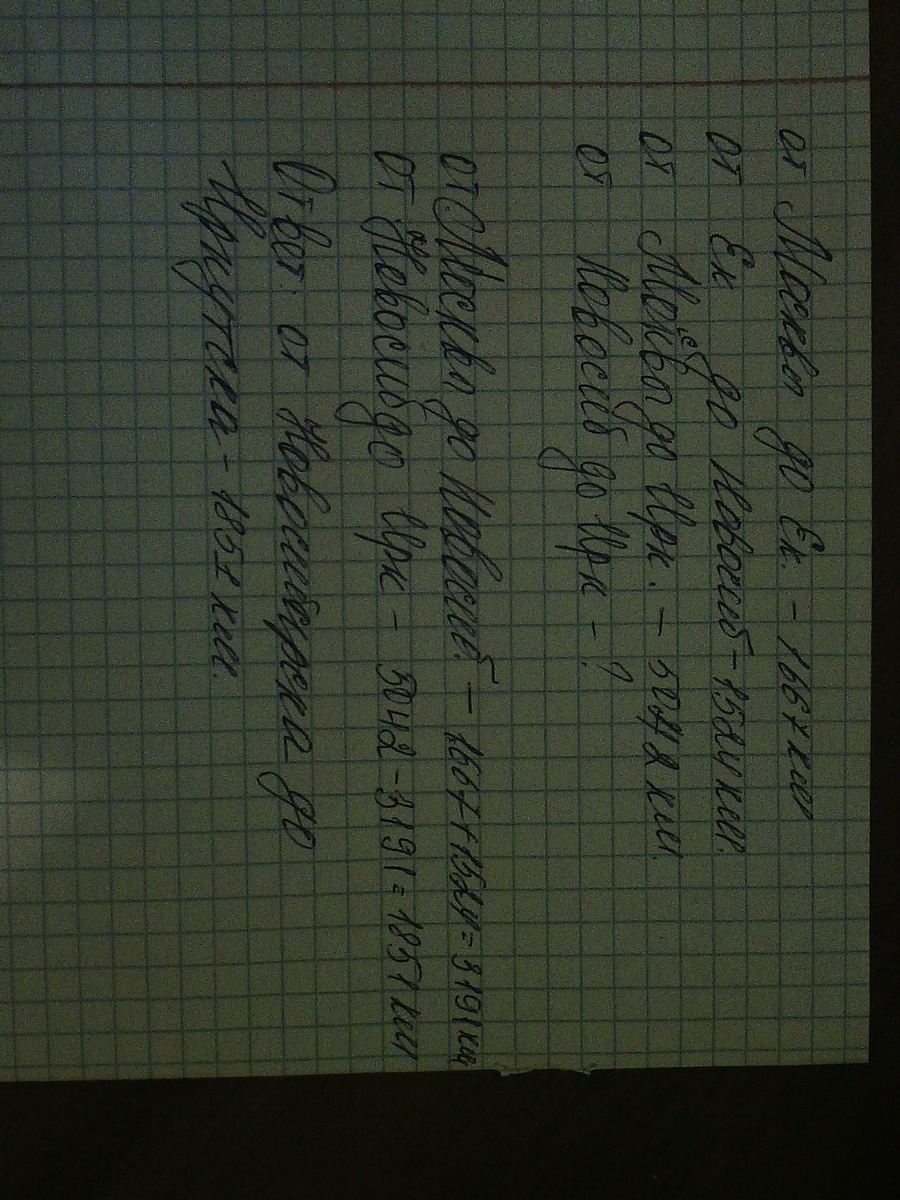 от Москвы до Ек. - 1667 км
от Ек до Новосиб - 1524 км.
от Москвы до Ирк. - 5042 км.
от Новосиб до Ирк - ?
от Москвы до Новосиб. - 1667+1524=3191 км
от Новосиб до Ирк - 5042-3191=1851 км
Ответ: от Новосибирска до
Иркутска - 1851 км.